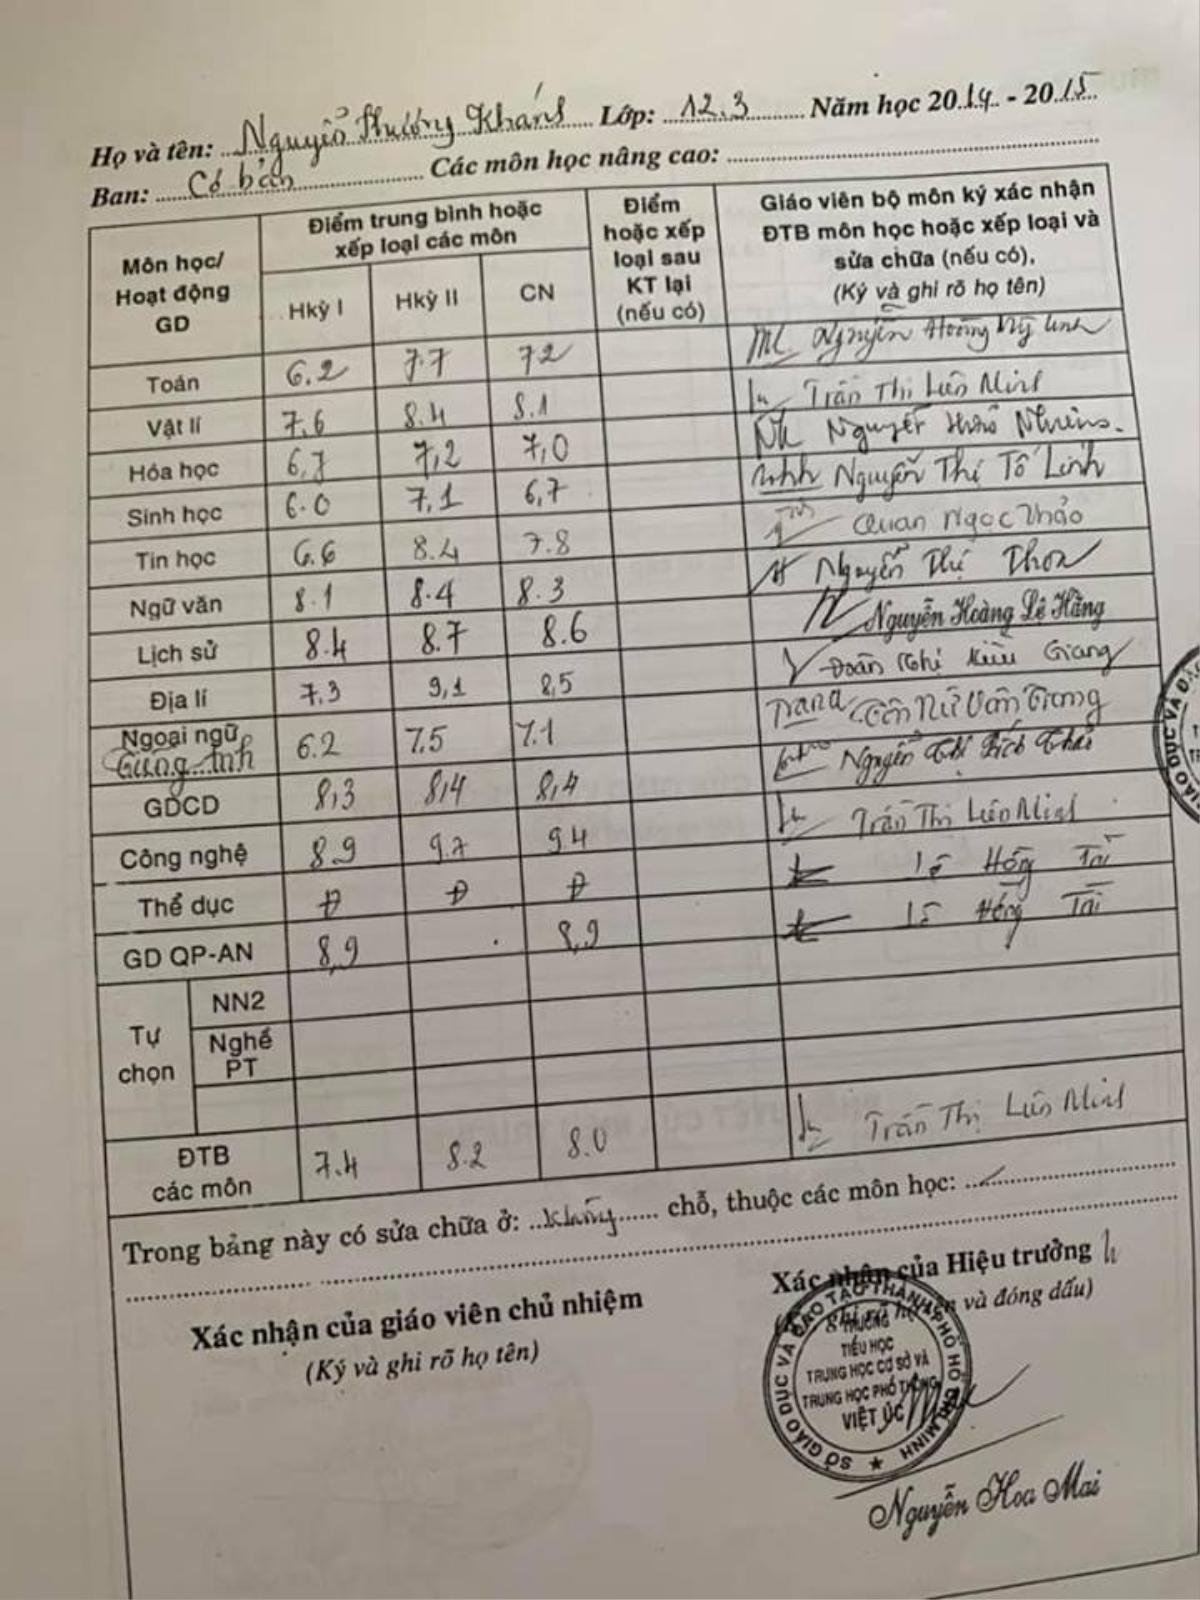 Họ và tên: Nguyễn Phương Khánh Lớp: 12.3 Năm học 2014 - 2015
Ban: Cơ bản Các môn học nâng cao:
Môn học/ Hoạt động GD | Điểm trung bình hoặc xếp loại các môn | Điểm hoặc xếp loại sau KT lại (nếu có) | Giáo viên bộ môn ký xác nhận ĐTB môn học hoặc xếp loại và sửa chữa (nếu có), (Ký và ghi rõ họ tên)
Hkỳ I | Hkỳ II | CN
Toán 6.2 7.7 7.2 Nguyễn Hoàng Mỹ Linh
Vật lí 7.6 8.4 8.1 Trần Thị Liên Minh
Hóa học 6,7 7,2 7,0 Nguyễn Thảo
Sinh học 6.0 7,1 6,7 Nguyễn Thị Tố Linh
Tin học 6.6 8.4 7.8 Quan Ngọc Thảo
Ngữ văn 8.1 8.4 8.3 Nguyễn Thị Thoa
Lịch sử 8.4 8.7 8.6 Nguyễn Hoàng Lệ Hằng
Địa lí 7.3 9,1 8,5 Đoàn Thị Kiều Giang
Ngoại ngữ Tiếng Anh 6.2 7.5 7.1 Trang Tôn Nữ Vân Trang
GDCD 8,3 8,4 8,4 Nguyễn Thị Bích
Công nghệ 8.9 9.7 9.4 Trần Thị Liên Minh
Thể dục Đ Đ Đ Lê Hồng Tài
GD QP-AN 8,9 8,9 Lê Hồng Tài
Tự chọn
NN2
Nghề PT
ĐTB các môn 7.4 8.2 8.0 Trần Thị Liên Minh
Trong bảng này có sửa chữa ở: không chỗ, thuộc các môn học:
Xác nhận của giáo viên chủ nhiệm
(Ký và ghi rõ họ tên)
Xác nhận của Hiệu trưởng
ghi rõ họ tên và đóng dấu)
SỞ GIÁO DỤC VÀ ĐÀO TẠO THÀNH PHỐ HỒ CHÍ MINH
TRƯỜNG
TIỂU HỌC
TRUNG HỌC CƠ SỞ VÀ
TRUNG HỌC PHỔ THÔNG
VIỆT ÚC
Nguyễn Hoa Mai
GIÁO DỤC VÀ